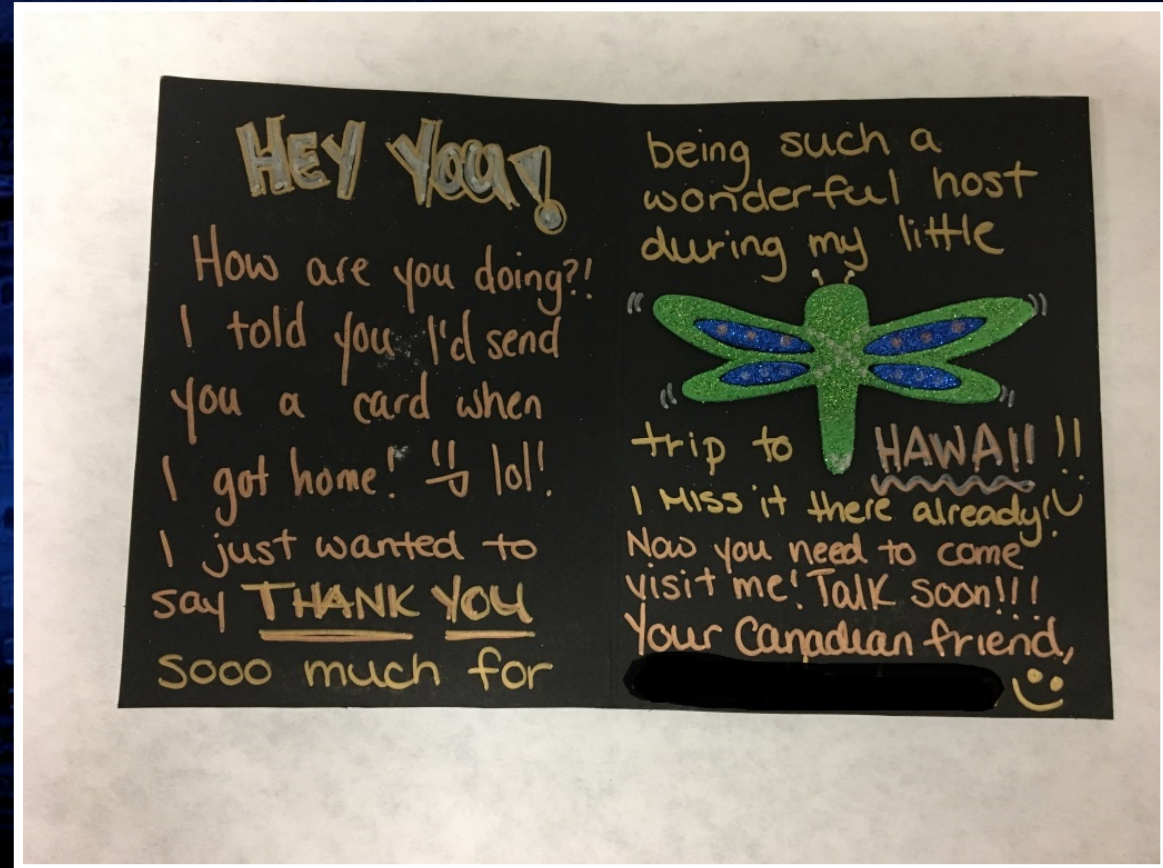 HEY YOU!
How are you doing?!
I told you I'd send
you a card when
I got home! lol!
I just wanted to
say THANK YOU
sooo much for
being such a
wonderful host
during my little
trip to HAWAII!!
I Miss it there already!
Now you need to come
visit me! Talk soon!!!
Your Canadian friend,